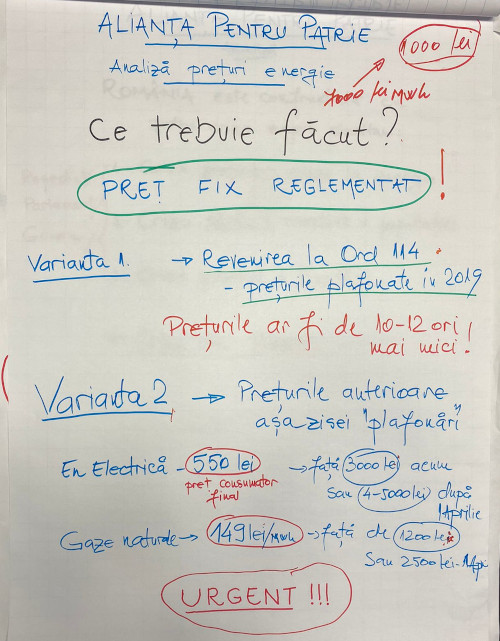 ALIANȚA PENTRU PATRIE
1000 lei
Analiză prețuri energie
7000 lei MWh
Ce trebuie făcut?
PREȚ FIX REGLEMENTAT !
Varianta 1. → Revenirea la Ord 114.
- prețurile plafonate în 2019
Prețurile ar fi de 10-12 ori
mai mici!
Varianta 2 → Prețurile anterioare
așa zisei "plafonări"
En Electrică - 550 lei → față 3000 lei acum
preț consumator
final
sau 4-5000 lei după
1 Aprilie
Gaze naturale → 149 lei/MWh → față de 1200 lei
sau 2500 lei - 1 Apr
URGENT !!!